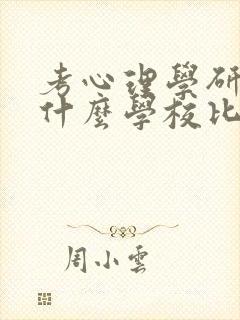 考心理學研
什麼學校比
周小雲